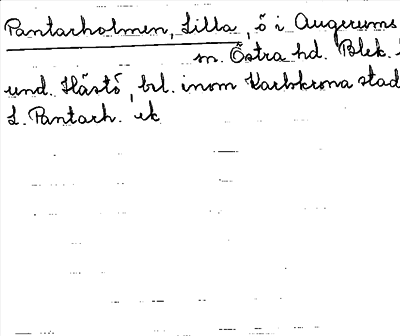 Pantarholmen, Lilla, ö i Augerums
m. Östra hd. Blek.
und. Hästö, bel. inom Karlskrona stad
L. Pantarh. ek